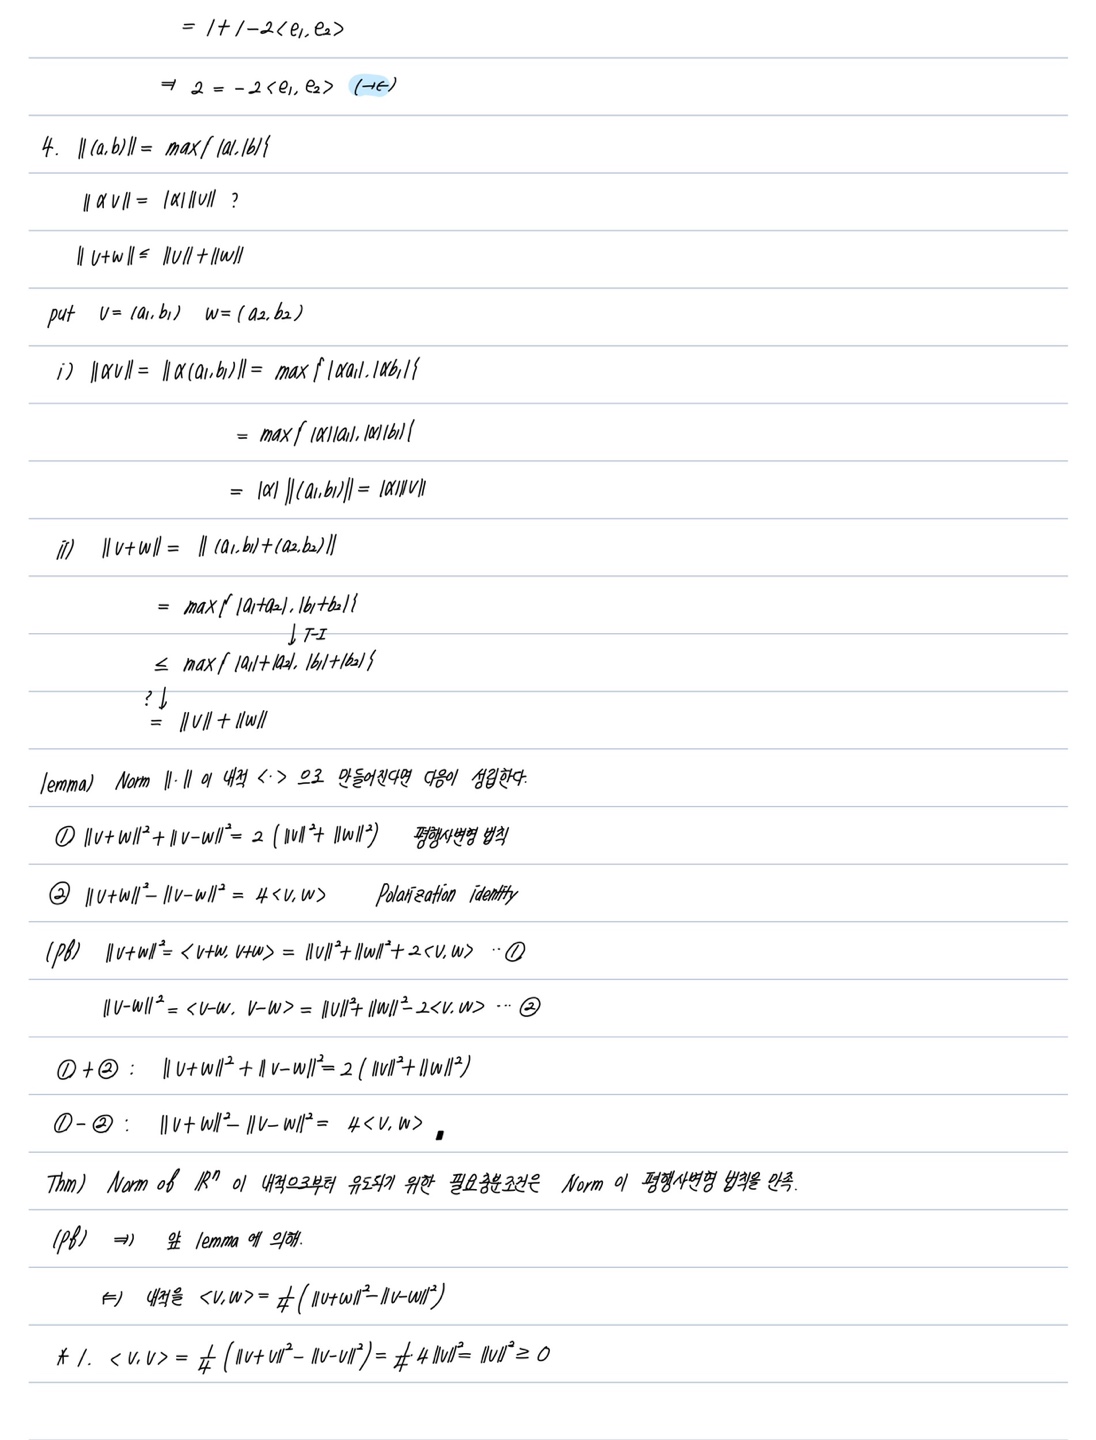 = 1+1-2<e₁, e₂>
⇒ 2 = -2<e₁, e₂> (→←)
4. ||(a,b)|| = max{|a|,|b|}
||αv|| = |α|||v|| ?
||v+w|| ≤ ||v||+||w||
put v=(a₁,b₁) w=(a₂,b₂)
i) ||αv|| = ||α(a₁,b₁)|| = max{|αa₁|,|αb₁|}
= max{|α||a₁|,|α||b₁|}
= |α| ||(a₁,b₁)|| = |α|||v||
ii) ||v+w|| = ||(a₁,b₁)+(a₂,b₂)||
= max{|a₁+a₂|,|b₁+b₂|}
↓ T-I
≤ max{|a₁|+|a₂|, |b₁|+|b₂|}
? ↓
= ||v||+||w||
lemma) Norm ||·||이 내적 <·>으로 만들어진다면 다음이 성립한다.
① ||v+w||²+||v-w||² = 2(||v||²+||w||²) 평행사변형 법칙
② ||v+w||²-||v-w||² = 4<v,w> Polarization identity
(pf) ||v+w||² = <v+w, v+w> = ||v||²+||w||²+2<v,w> ··①
||v-w||² = <v-w, v-w> = ||v||²+||w||²-2<v,w> ···②
①+② : ||v+w||²+||v-w||² = 2(||v||²+||w||²)
①-② : ||v+w||²-||v-w||² = 4<v,w> ∎
Thm) Norm of ℝⁿ이 내적으로부터 유도되기 위한 필요충분조건은 Norm이 평행사변형 법칙을 만족.
(pf) ⇒) 앞 lemma에 의해.
⇐) 내적을 <v,w> = 1/4(||v+w||²-||v-w||²)
* 1. <v,v> = 1/4(||v+v||²-||v-v||²) = 1/4·4||v||² = ||v||² ≥ 0